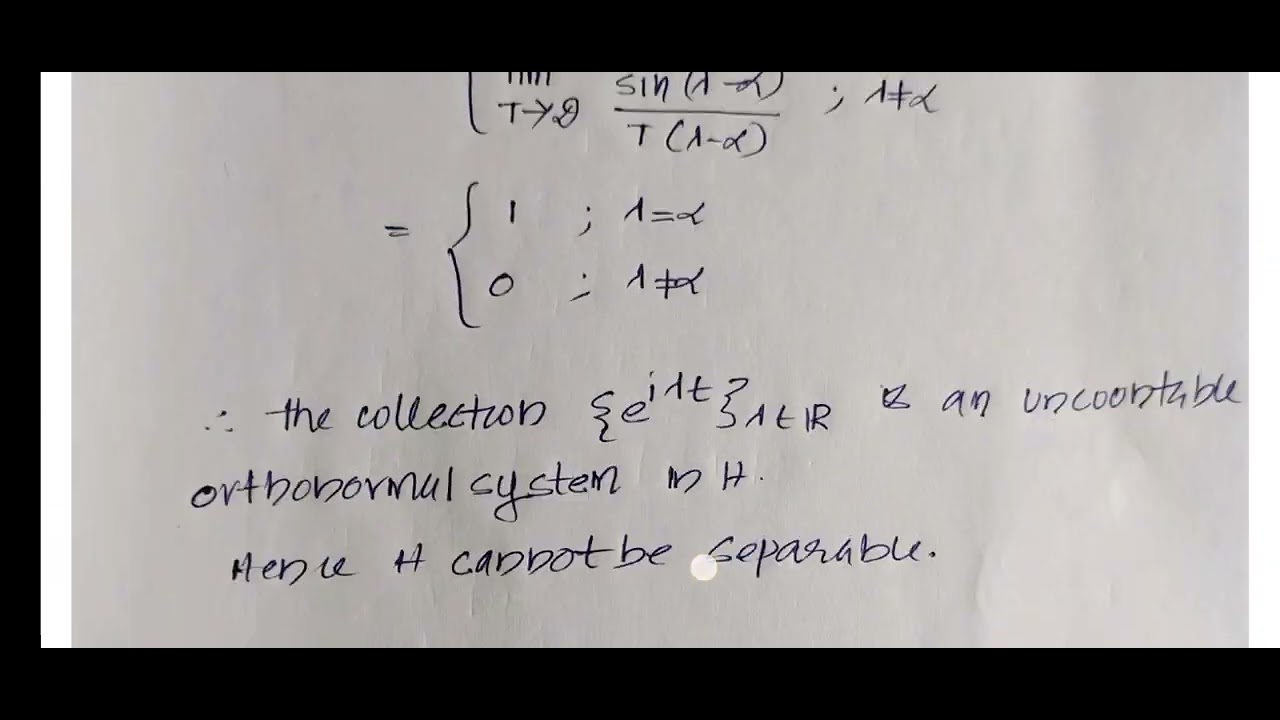 lim
T→∞ sin(λ-α) / T(λ-α) ; λ≠α
= { 1 ; λ=α
0 ; λ≠α
∴ the collection {e^{iλt}}_{λ∈ℝ} is an uncountable
orthonormal system in H.
Hence H cannot be separable.